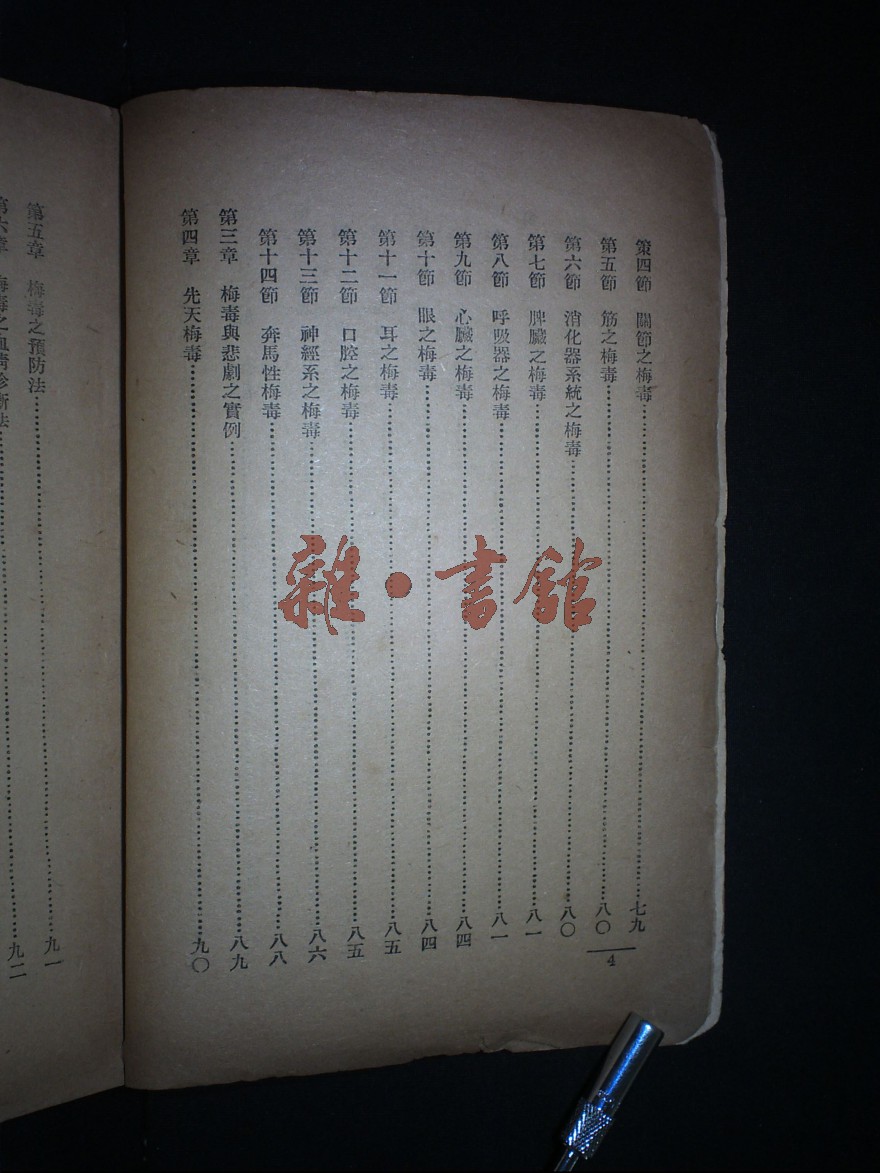 第四節　關節之梅毒…………七九
第五節　筋之梅毒…………八〇
第六節　消化器系統之梅毒…………八〇
第七節　脾臟之梅毒…………八一
第八節　呼吸器之梅毒…………八一
第九節　心臟之梅毒…………八四
第十節　眼之梅毒…………八四
第十一節　耳之梅毒…………八五
第十二節　口腔之梅毒…………八五
第十三節　神經系之梅毒…………八六
第十四節　奔馬性梅毒…………八八
第三章　梅毒與悲劇之實例…………八九
第四章　先天梅毒…………九〇
4
第五章　梅毒之預防法…………九一
第六章　梅毒之血清診斷法…………九二
雜・書館